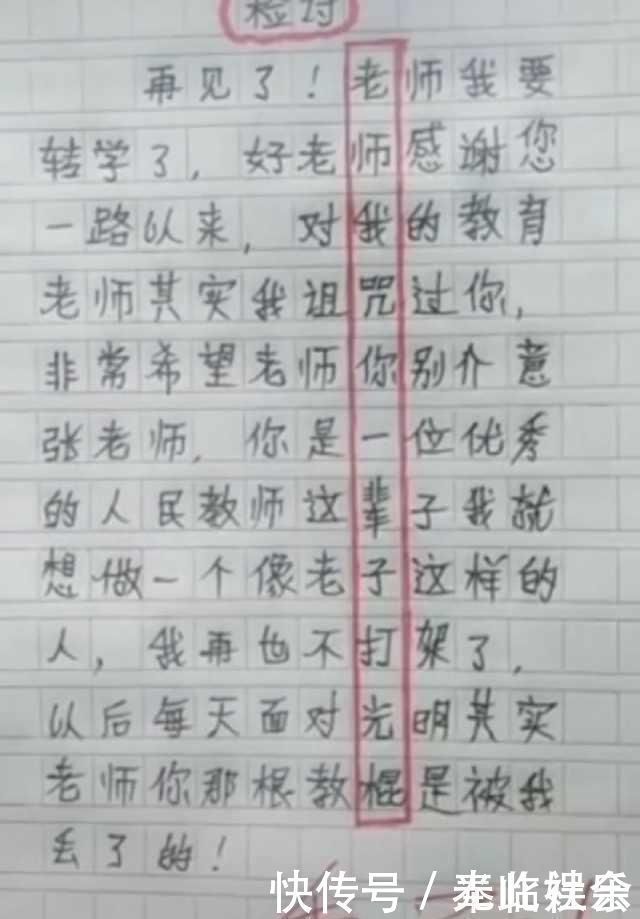 检讨
再见了！老师我要
转学了，好老师感谢您
一路以来，对我的教育
老师其实我诅咒过你，
非常希望老师你别介意
张老师，你是一位优秀
的人民教师这辈子我就
想做一个像老子这样的
人，我再也不打架了，
以后每天面对光明其实
老师你那根教棍是被我
丢了的！
快传号／